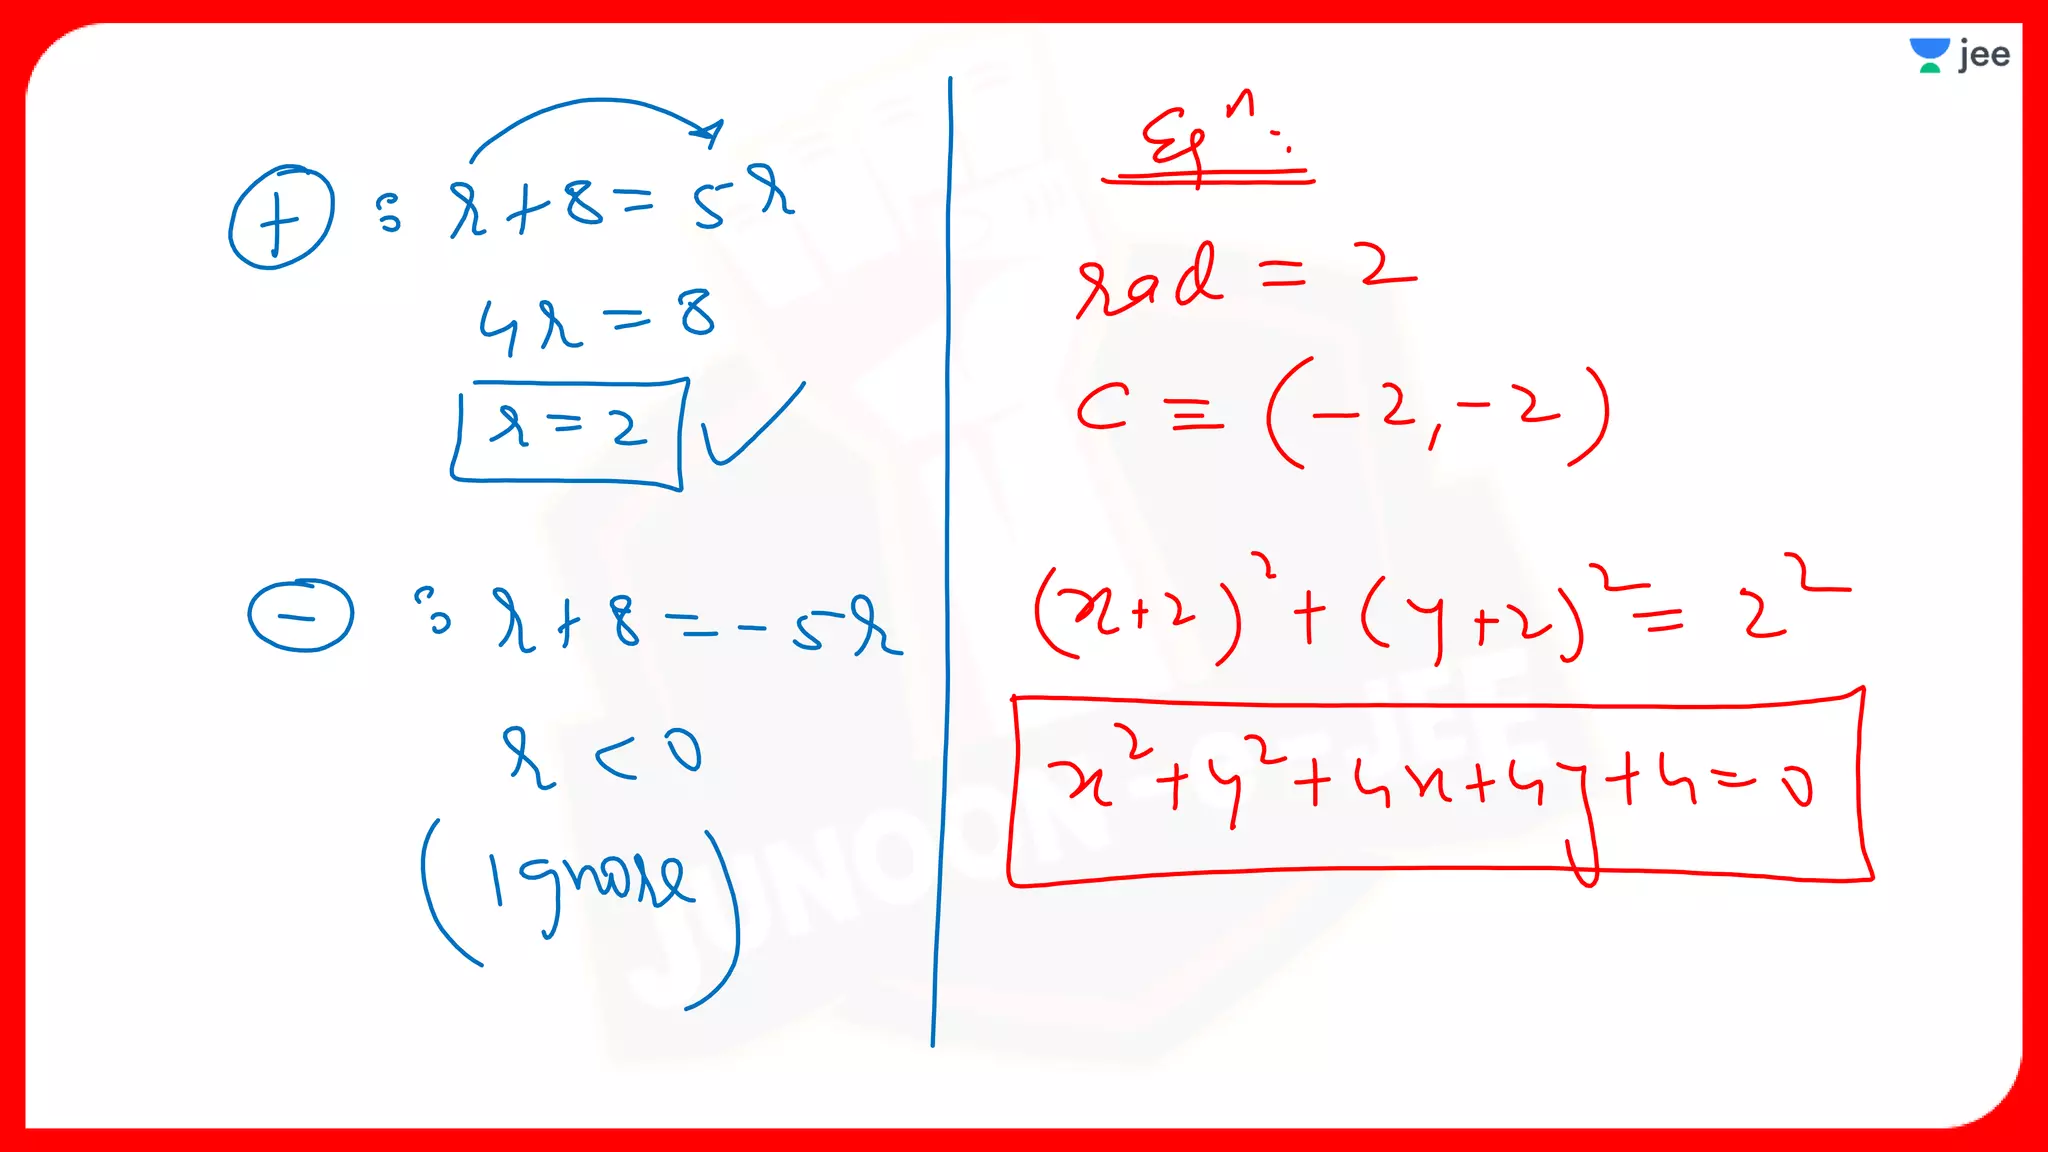 jee
+ : r + 8 = 5r
4r = 8
r = 2 ✓
− : r + 8 = -5r
r < 0
(Ignore)
Eqⁿ:
rad = 2
C ≡ (-2, -2)
(x+2)² + (y+2)² = 2²
x² + y² + 4x + 4y + 4 = 0
JUNOON-E-JEE